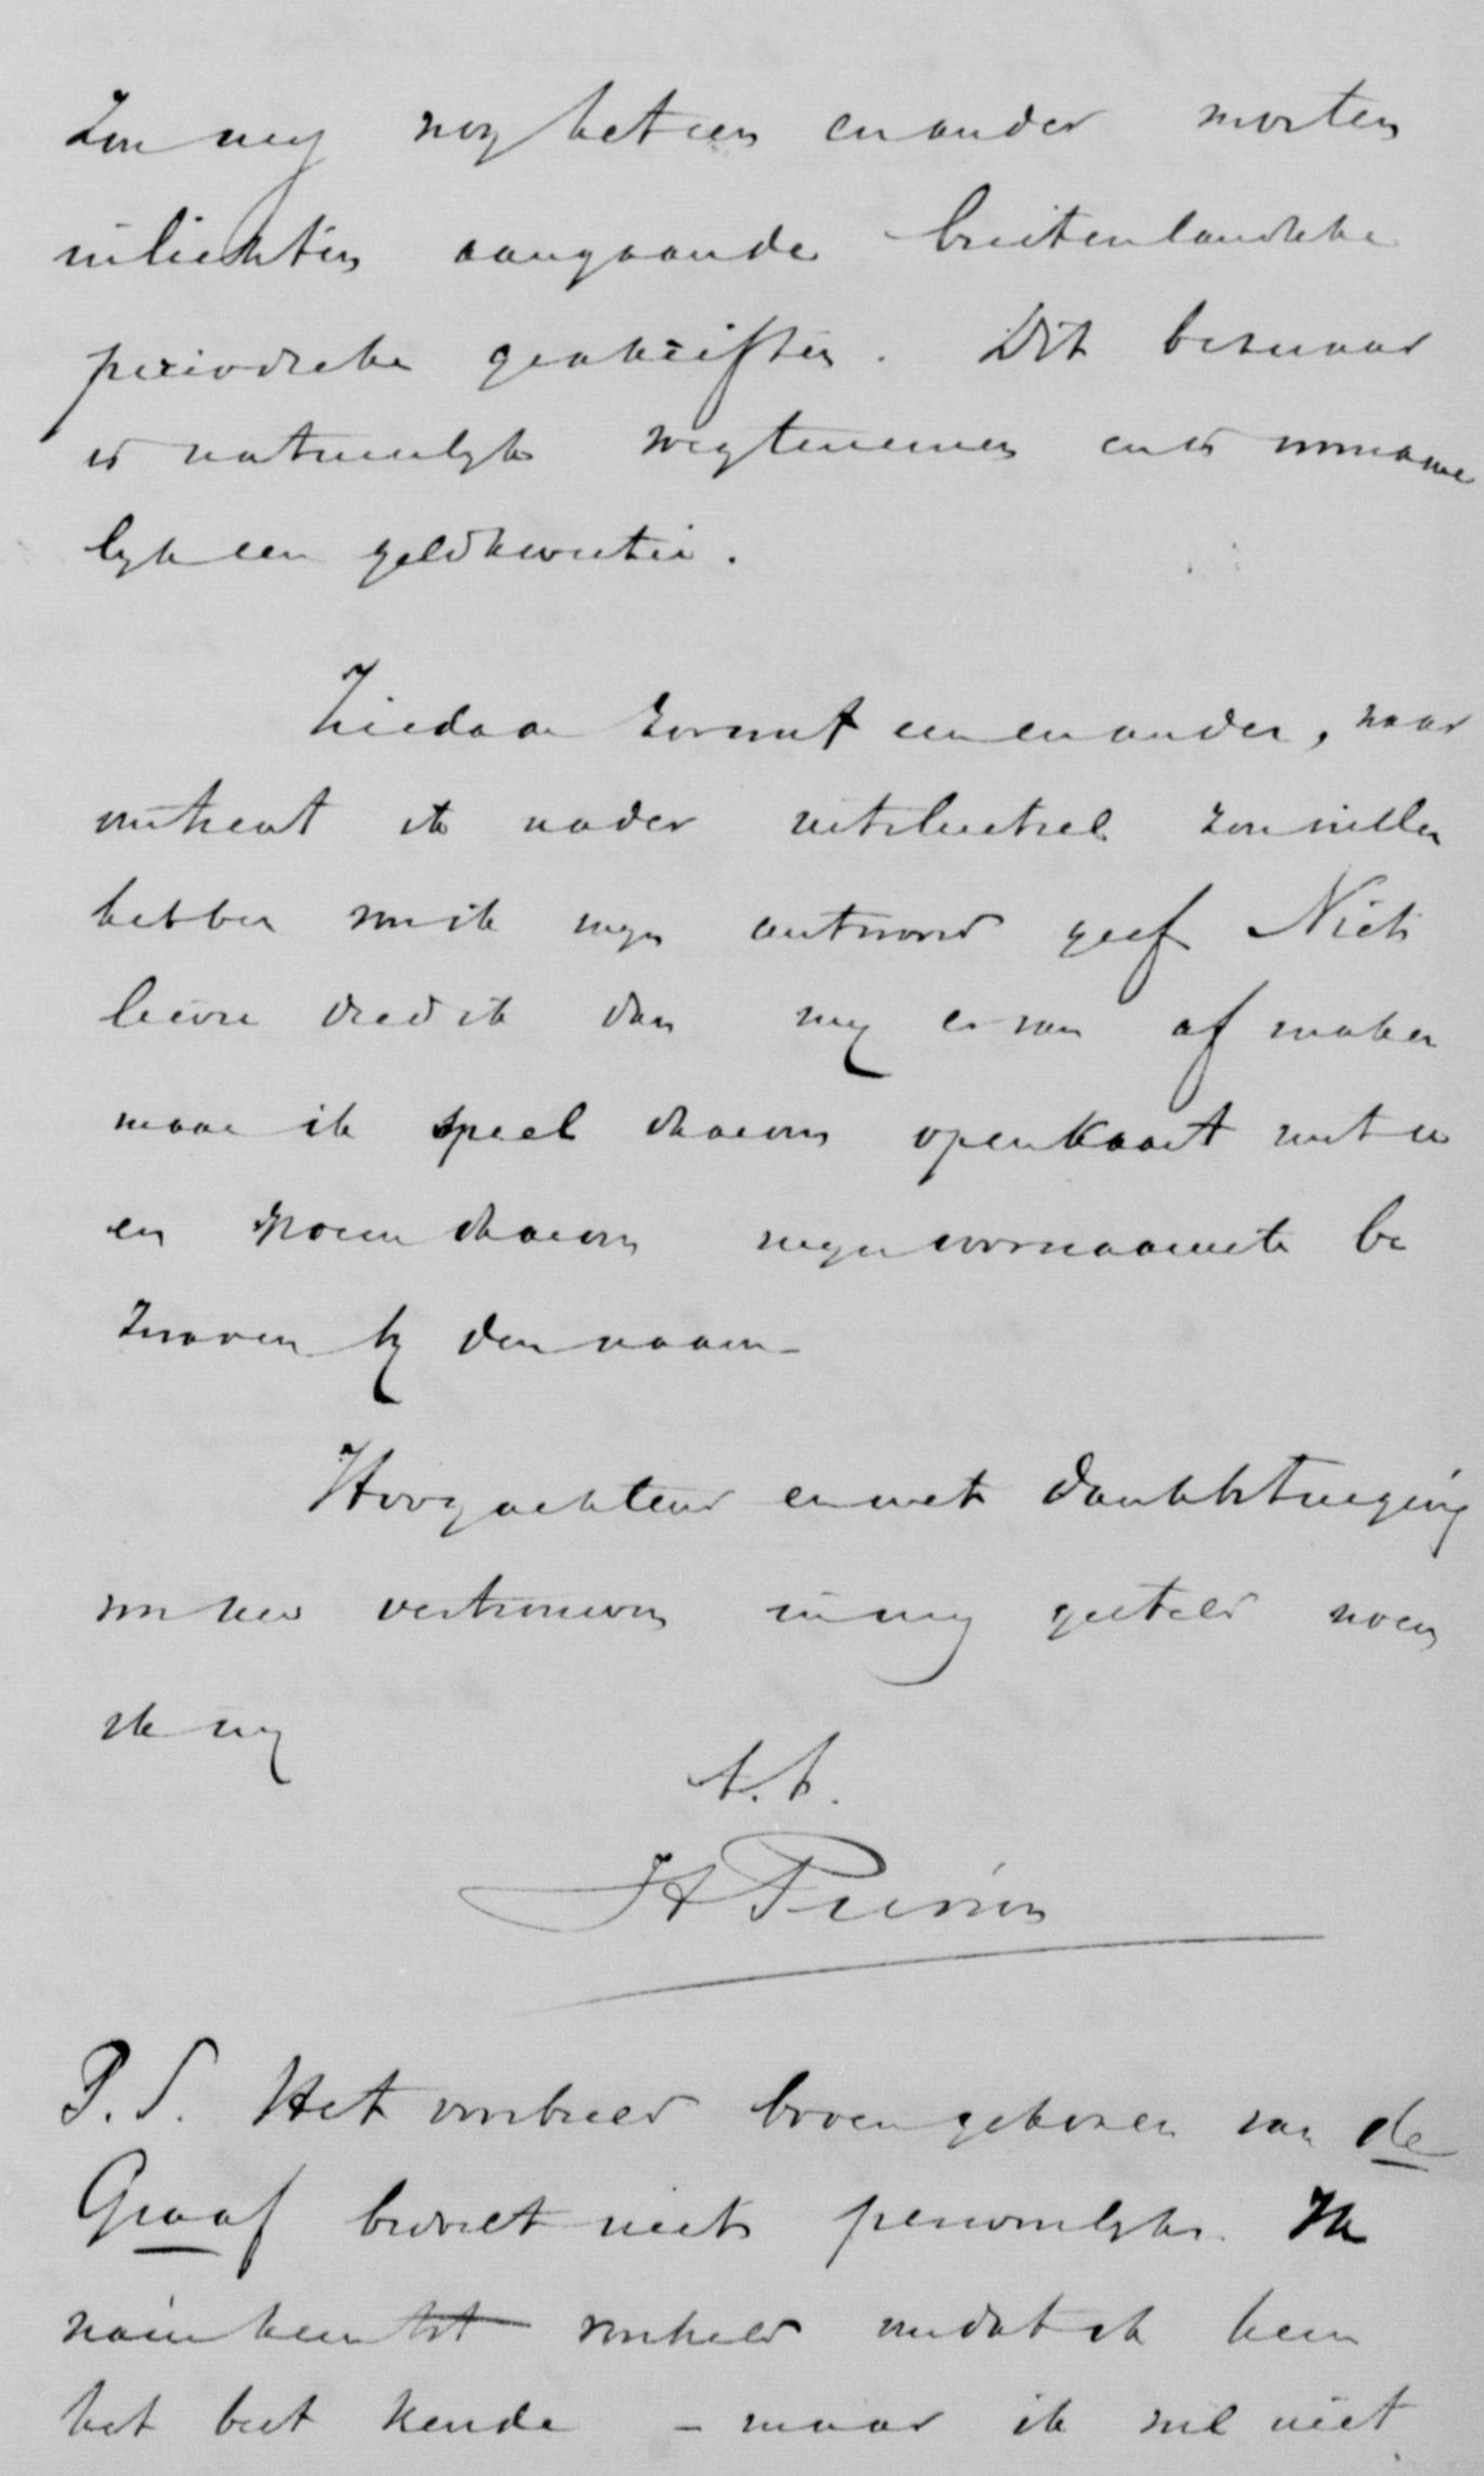 Zou mij nog het een en ander moeten
inlichten aangaande buitenlandsche
periodieke geschriften. Dit bezwaar
is natuurlijk wegtenemen en is voorname
lijk een geldkwestie.
Ziedaar zoowat een en ander, waar
omtrent ik nader uitsluitsel zou willen
hebben voor ik mijn antwoord geef Niets
liever deed ik dan mij er van af maken
maar ik speel daarom open kaart met u
en noem daarom mijn voornaamste be
zwaren bij den naam—
Hoogachtend en met dankbetuiging
voor het vertrouwen in mij gesteld noem
ik mij
t.t.
HPierson
P.S. Het voorbeeld boven gekozen van de
Graaf bedoelt niets persoonlijks. Ik
nam hem tot voorbeeld omdat ik hem
het best kende – maar ik wil niet